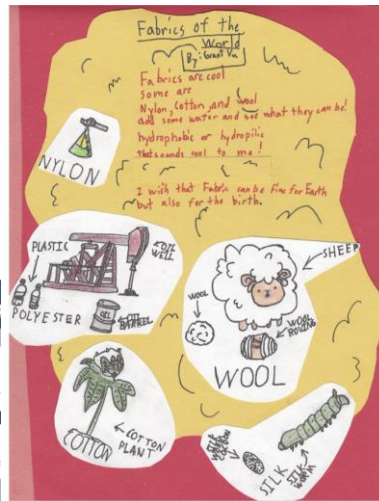 Fabrics of the
World
By: Grant Vu
Fabrics are cool
some are
Nylon, Cotton, and wool
add some water and see what they can be!
hydrophobic or hydropilic
that sounds cool to me!
I wish that Fabric can be fine for Earth
but also for the birth.
NYLON
PLASTIC
OIL
WELL
OIL
BARREL
POLYESTER
SHEEP
WOOL
WOOL
ROVING
WOOL
COTTON
COTTON
PLANT
SILK
SILK
WORM